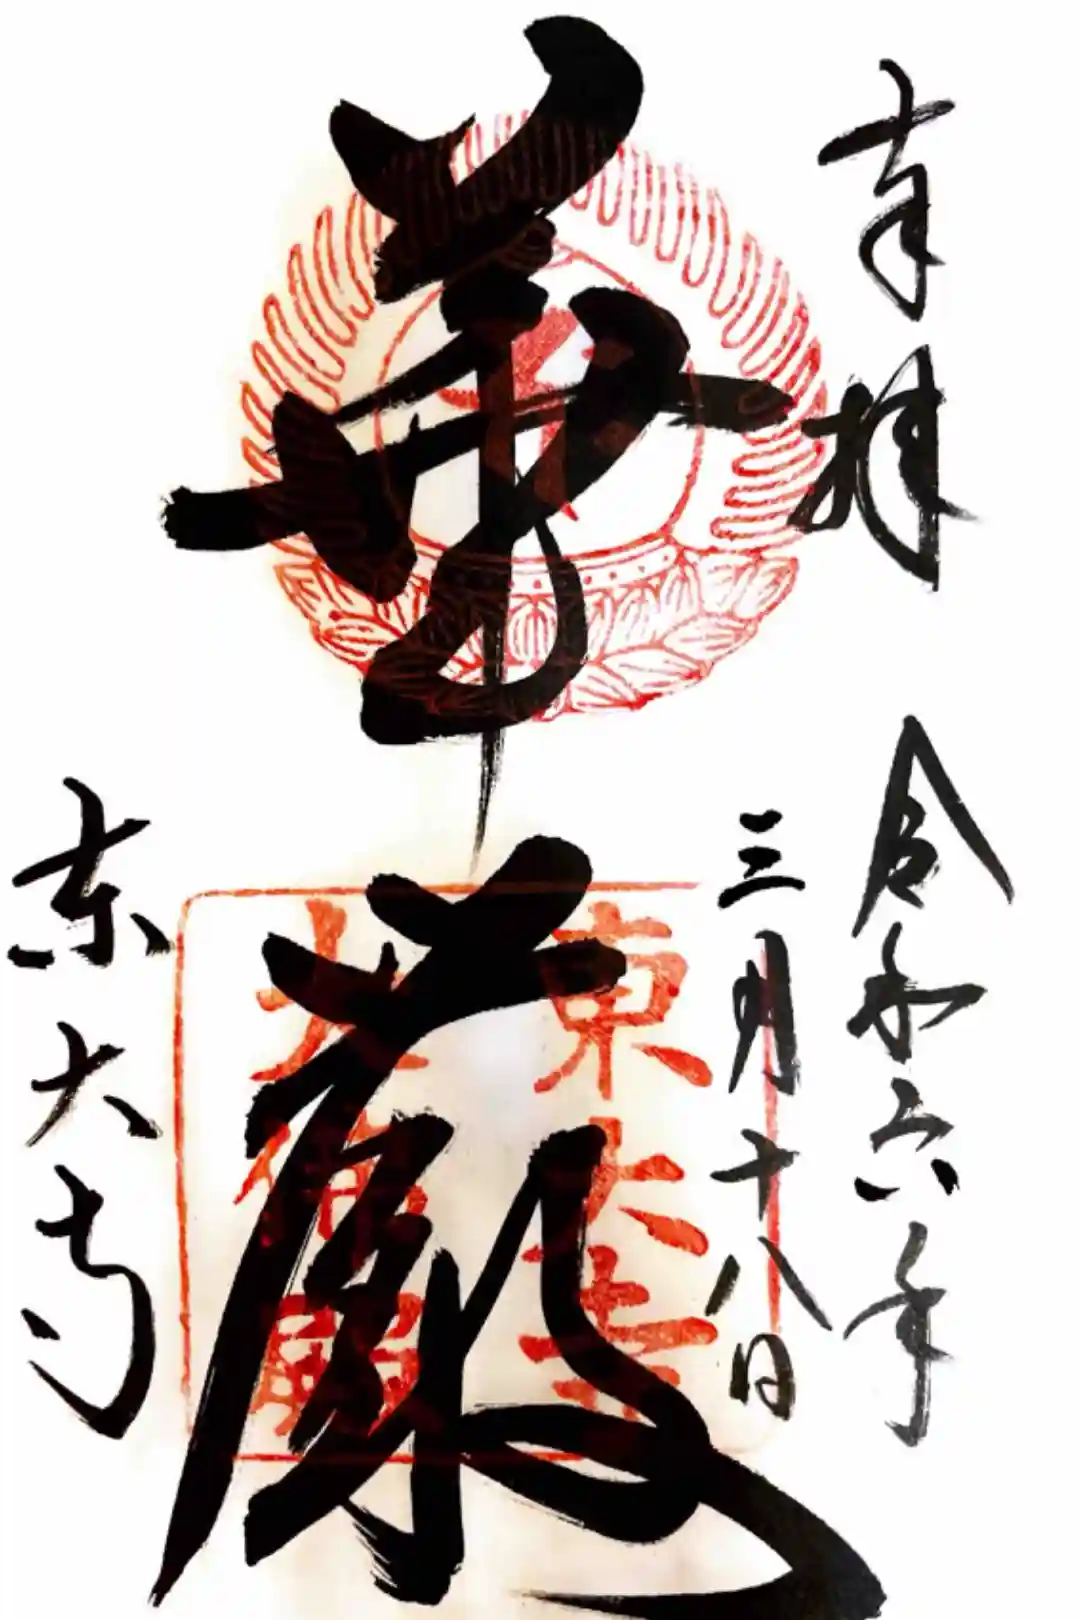 奉拝
令和六年
三月十八日
華嚴
東大寺
大佛殿
東大寺